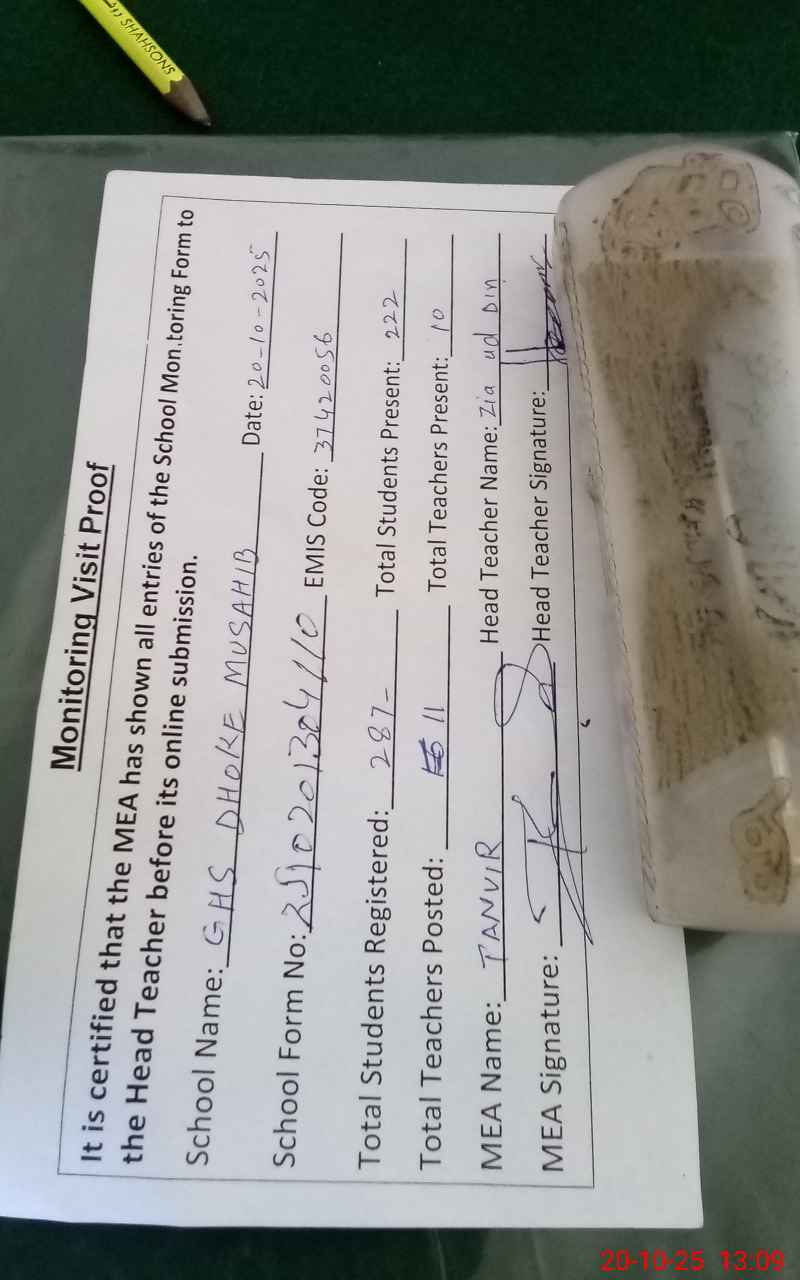 SHAHSONS
Monitoring Visit Proof
It is certified that the MEA has shown all entries of the School Monitoring Form to
the Head Teacher before its online submission.
School Name: GHS DHOKE MUSAHIB Date: 20-10-2025
School Form No: EMIS Code: 37420056
Total Students Registered: 287- Total Students Present: 222
Total Teachers Posted: 11 Total Teachers Present: 10
MEA Name: TANVIR Head Teacher Name: Zia ud Din
MEA Signature: Head Teacher Signature:
20-10-25 13:09